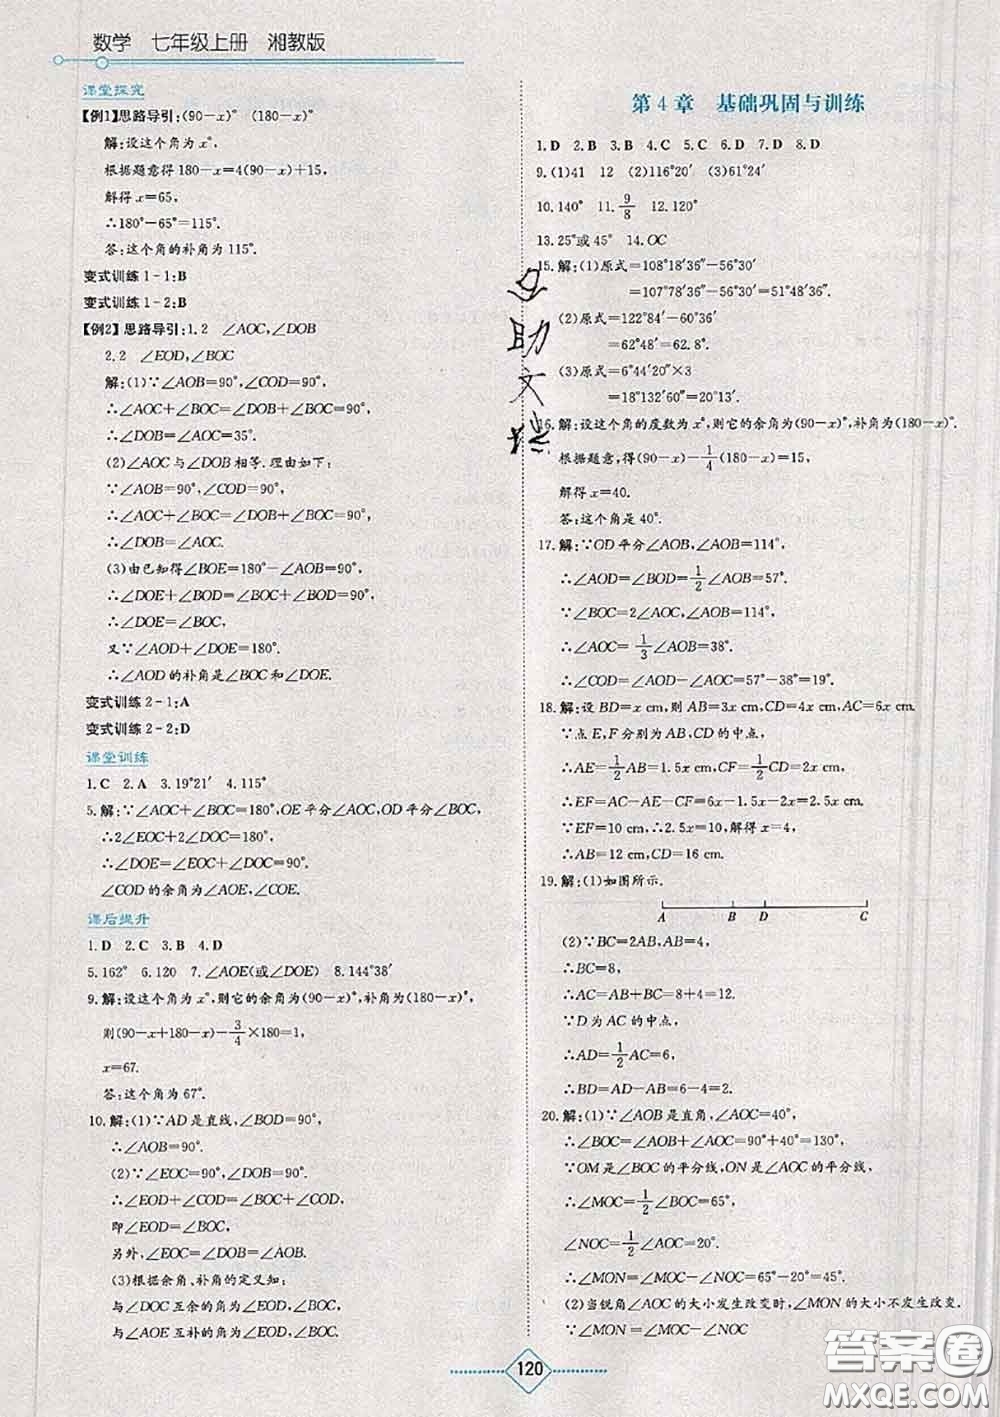 数学 七年级上册 湘教版
课堂探究
【例1】思路导引:(90-x)° (180-x)°
解:设这个角为x°,
根据题意得180-x=4(90-x)+15,
解得x=65,
∴180°-65°=115°.
答:这个角的补角为115°.
变式训练1-1:B
变式训练1-2:B
【例2】思路导引:1.2 ∠AOC,∠DOB
2.2 ∠EOD,∠BOC
解:(1)∵∠AOB=90°,∠COD=90°,
∴∠AOC+∠BOC=∠DOB+∠BOC=90°,
∴∠DOB=∠AOC=35°.
(2)∠AOC与∠DOB相等.理由如下:
∵∠AOB=90°,∠COD=90°,
∴∠AOC+∠BOC=∠DOB+∠BOC=90°,
∴∠DOB=∠AOC.
(3)由已知得∠BOE=180°-∠AOB=90°,
∴∠DOE+∠BOD=∠BOC+∠BOD=90°,
∴∠DOE=∠BOC,
又∵∠AOD+∠DOE=180°,
∴∠AOD的补角是∠BOC和∠DOE.
变式训练2-1:A
变式训练2-2:D
课堂训练
1.C 2.A 3.19°21′ 4.115°
5.解:∵∠AOC+∠BOC=180°,OE平分∠AOC,OD平分∠BOC,
∴2∠EOC+2∠DOC=180°,
∴∠DOE=∠EOC+∠DOC=90°.
∠COD的余角为∠AOE,∠COE.
课后提升
1.D 2.C 3.B 4.D
5.162° 6.120 7.∠AOE(或∠DOE) 8.144°38′
9.解:设这个角为x°,则它的余角为(90-x)°,补角为(180-x)°,
则(90-x+180-x)-3/4×180=1,
x=67.
答:这个角为67°.
10.解:(1)∵AD是直线,∠BOD=90°,
∴∠AOB=90°.
(2)∵∠EOC=90°,∠DOB=90°,
∴∠EOD+∠COD=∠BOC+∠COD=90°,
即∠EOD=∠BOC,
另外,∠EOC=∠DOB=∠AOB.
(3)根据余角、补角的定义知:
与∠DOC互余的角为∠EOD,∠BOC,
与∠AOE互补的角为∠EOD,∠BOC.
第4章 基础巩固与训练
1.D 2.B 3.B 4.C 5.C 6.D 7.D 8.D
9.(1)41 12 (2)116°20′ (3)61°24′
10.140° 11.9/8 12.120°
13.25°或45° 14.OC
15.解:(1)原式=108°18′36″-56°30′
=107°78′36″-56°30′=51°48′36″.
(2)原式=122°84′-60°36′
=62°48′=62.8°.
(3)原式=6°44′20″×3
=18°132′60″=20°13′.
16.解:设这个角的度数为x°,则它的余角为(90-x)°,补角为(180-x)°.
根据题意,得(90-x)-1/4(180-x)=15,
解得x=40.
答:这个角是40°.
17.解:∵OD平分∠AOB,∠AOB=114°,
∴∠AOD=∠BOD=1/2∠AOB=57°.
∵∠BOC=2∠AOC,∠AOB=114°,
∴∠AOC=1/3∠AOB=38°.
∴∠COD=∠AOD-∠AOC=57°-38°=19°.
18.解:设BD=x cm,则AB=3x cm,CD=4x cm,AC=6x cm.
∵点E,F分别为AB,CD的中点,
∴AE=1/2AB=1.5x cm,CF=1/2CD=2x cm.
∴EF=AC-AE-CF=6x-1.5x-2x=2.5x cm.
∵EF=10 cm,∴2.5x=10,解得x=4,
∴AB=12 cm,CD=16 cm.
19.解:(1)如图所示.
A B D C
(2)∵BC=2AB,AB=4,
∴BC=8,
∴AC=AB+BC=8+4=12.
∵D为AC的中点,
∴AD=1/2AC=6.
∴BD=AD-AB=6-4=2.
20.解:(1)∵∠AOB是直角,∠AOC=40°,
∴∠BOC=∠AOB+∠AOC=90°+40°=130°,
∵OM是∠BOC的平分线,ON是∠AOC的平分线,
∴∠MOC=1/2∠BOC=65°,
∠NOC=1/2∠AOC=20°.
∴∠MON=∠MOC-∠NOC=65°-20°=45°.
(2)当锐角∠AOC的大小发生改变时,∠MON的大小不发生改变.
∵∠MON=∠MOC-∠NOC
120
答案圈
MXQE.COM